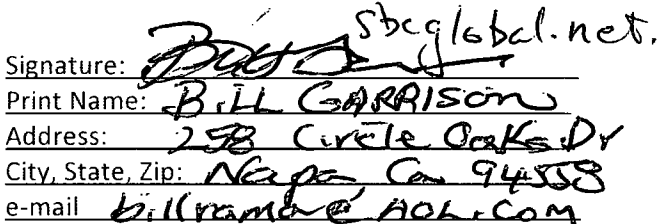 sbcglobal.net.
Signature:
Print Name: BILL GARRISON
Address: 258 Circle Oaks Dr
City, State, Zip: Napa Ca 94558
e-mail billramov@AOL.COM